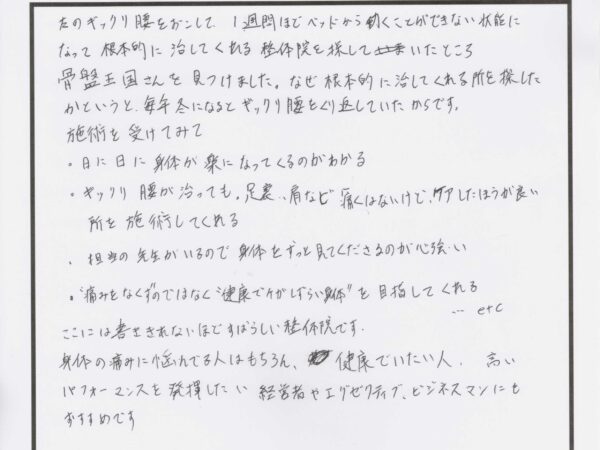 左のギックリ腰をおこして、1週間ほどベッドから動くことができない状態に
なって根本的に治してくれる整体院を探していたところ
骨盤王国さんを見つけました。なぜ根本的に治してくれる所を探した
かというと、毎年冬になるとギックリ腰をくり返していたからです。
施術を受けてみて
・日に日に身体が楽になってくるのがわかる
・ギックリ腰が治っても、足裏、肩など痛くはないけど、ケアしたほうが良い
所を施術してくれる
・担当の先生がいるので身体をずっと見てくださるのが心強い
・"痛みをなくすのではなく"健康でケガしずらい身体"を目指してくれる
… etc
ここには書ききれないほどすばらしい整体院です。
身体の痛みに悩れてる人はもちろん、健康でいたい人、高い
パフォーマンスを発揮したい経営者やエグゼクティブ、ビジネスマンにも
おすすめです